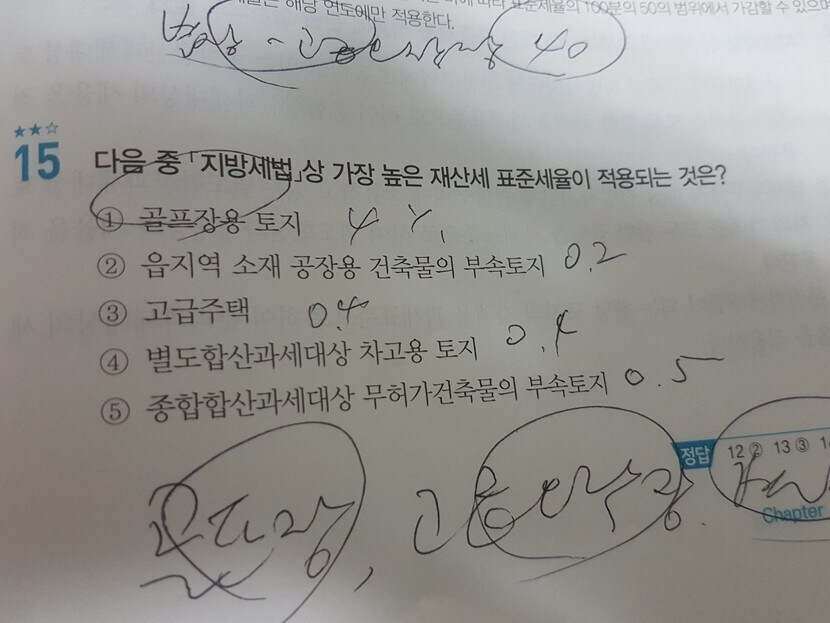 해당 연도에만 적용한다. 따라 표준세율의 100분의 50의 범위에서 가감할 수 있으며
40
★★☆
15 다음 중 「지방세법」상 가장 높은 재산세 표준세율이 적용되는 것은?
① 골프장용 토지 4%
② 읍지역 소재 공장용 건축물의 부속토지 0.2
③ 고급주택 0.4
④ 별도합산과세대상 차고용 토지 0.4
⑤ 종합합산과세대상 무허가건축물의 부속토지 0.5
정답 12 ② 13 ③
골프장, 고급오락장.
Chapter